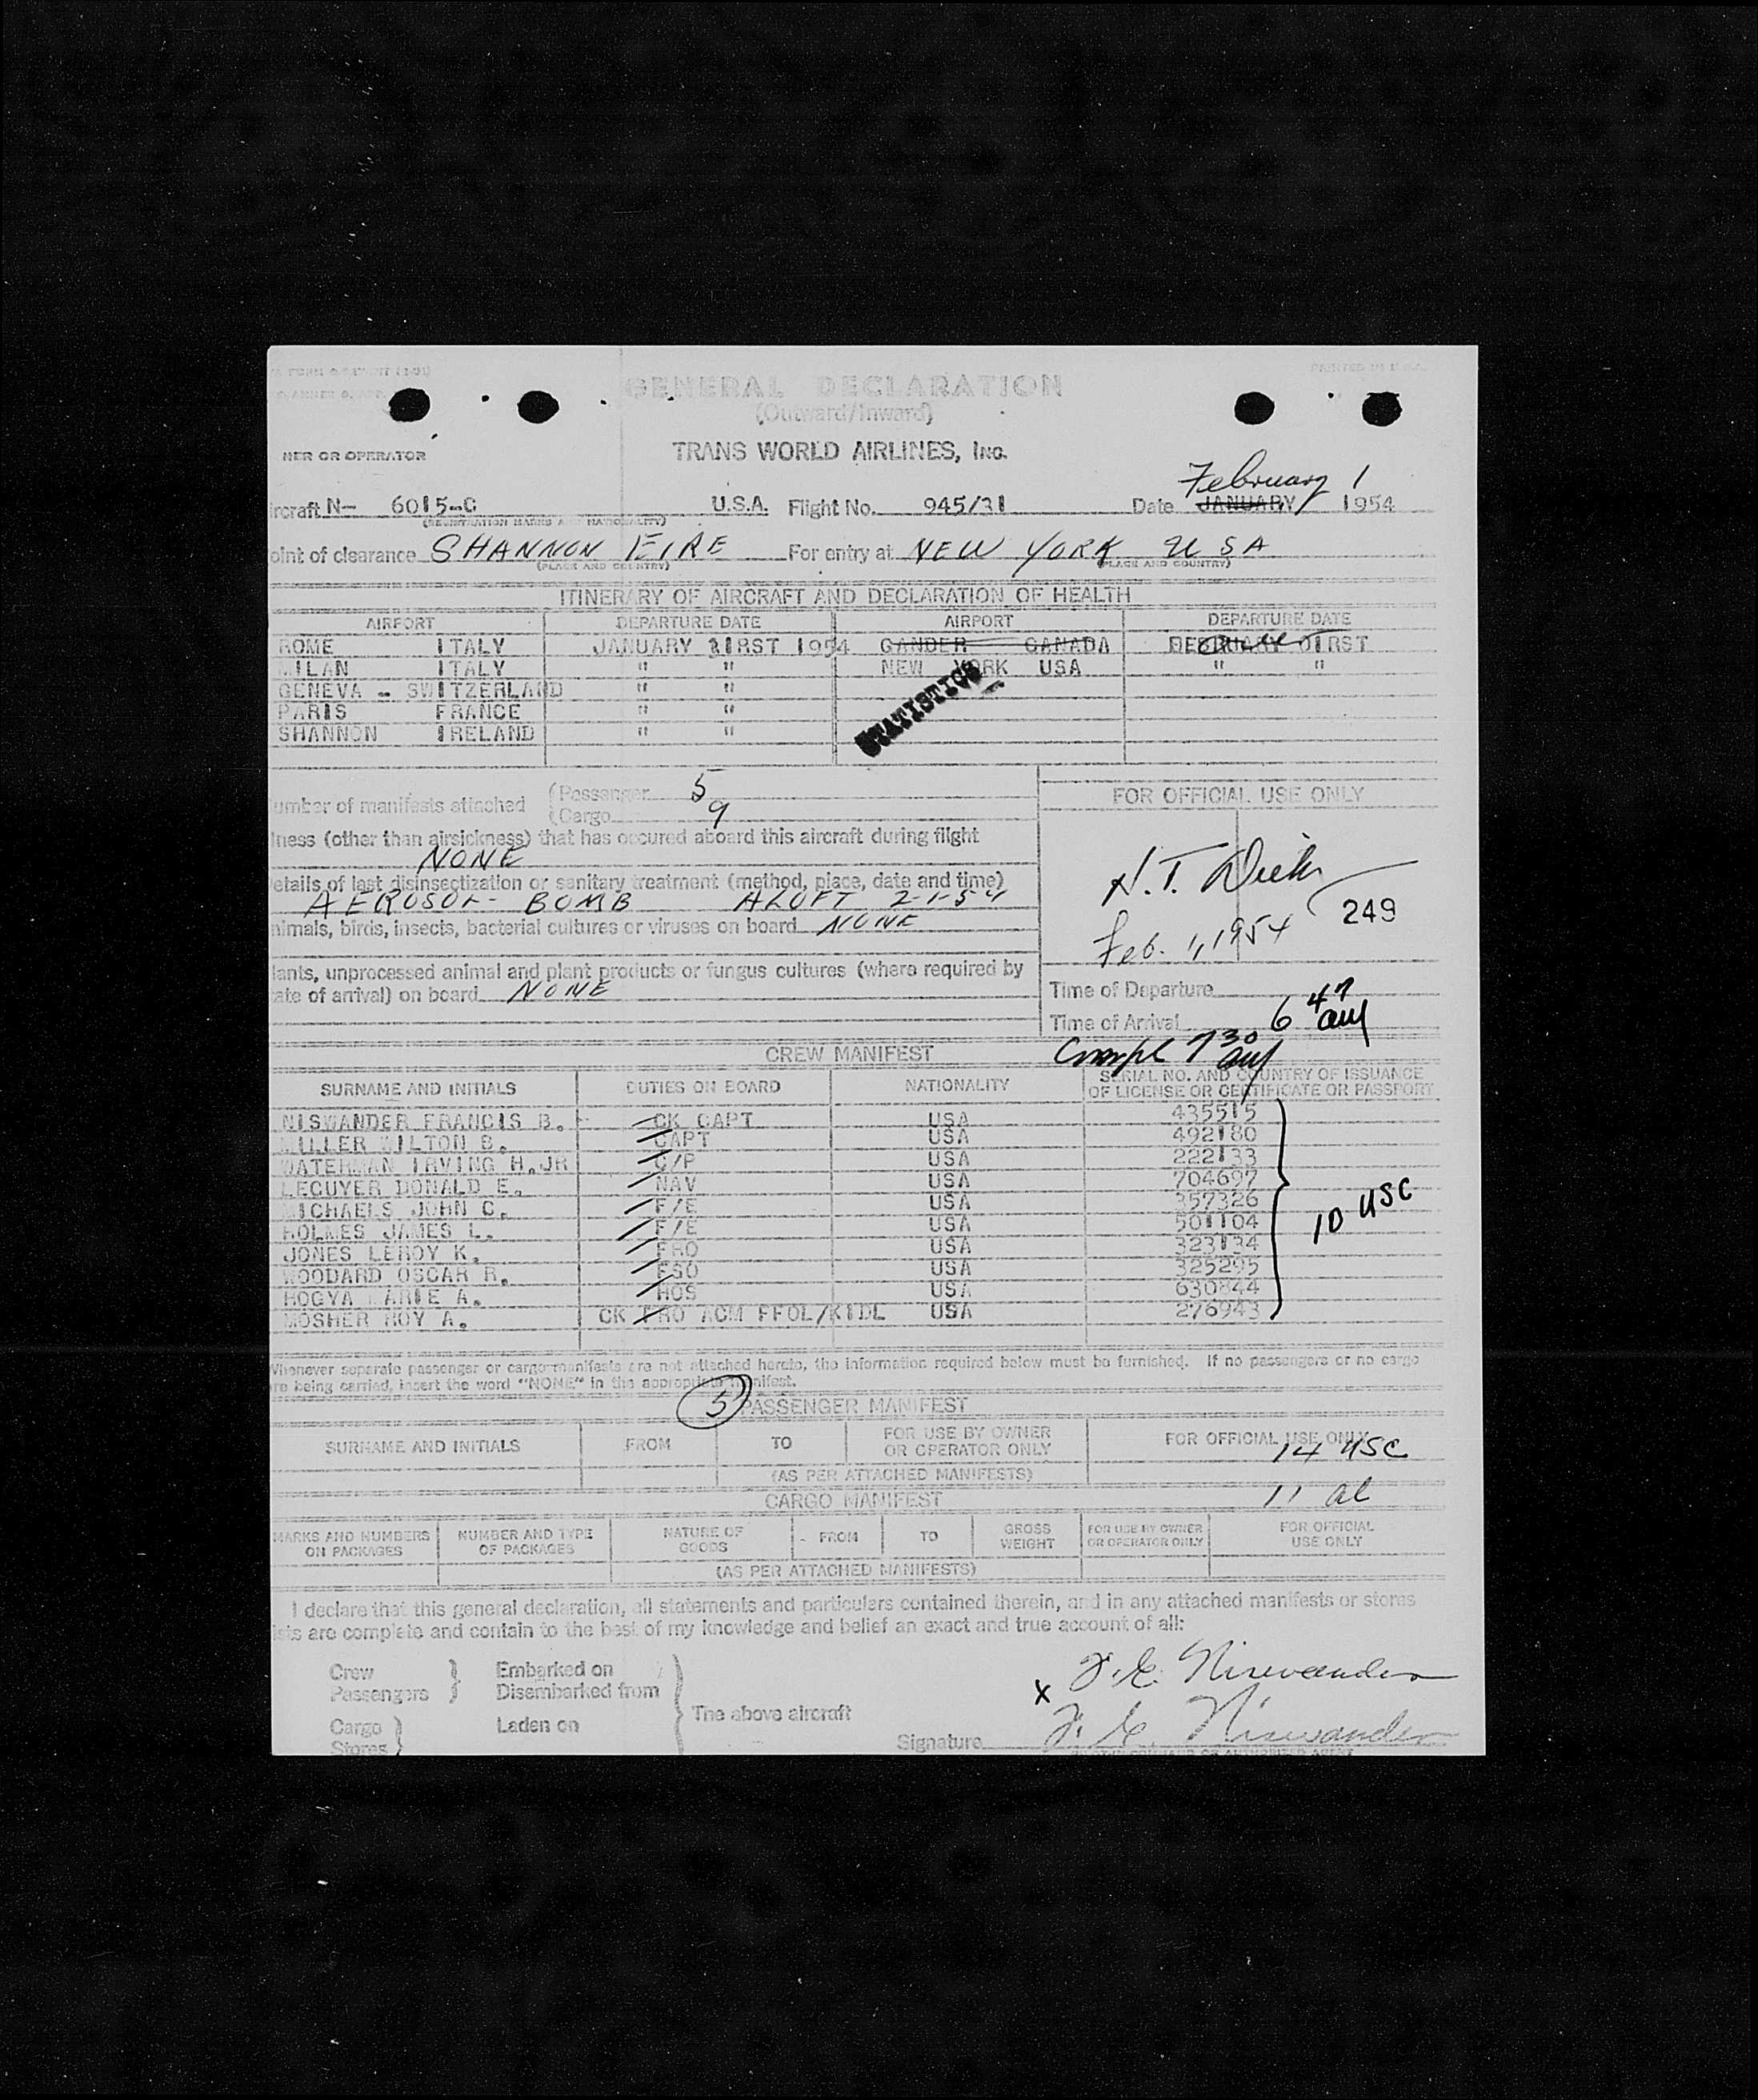 GENERAL DECLARATION
PRINTED IN U.S.A.
(Outward/Inward)
TRANS WORLD AIRLINES, Inc.
NER OR OPERATOR
February 1
ircraft N- 6015-C U.S.A. Flight No. 945/31 Date JANUARY 1954
(REGISTRATION MARKS AND NATIONALITY)
oint of clearance SHANNON EIRE For entry at NEW YORK USA
(PLACE AND COUNTRY) (PLACE AND COUNTRY)
ITINERARY OF AIRCRAFT AND DECLARATION OF HEALTH
AIRPORT DEPARTURE DATE AIRPORT DEPARTURE DATE
ROME ITALY JANUARY 31RST 1954 GANDER CANADA FEBRUARY 01RST
MILAN ITALY " " NEW YORK USA " "
GENEVA - SWITZERLAND " "
PARIS FRANCE " "
SHANNON IRELAND " "
STATISTICS
umber of manifests attached (Passenger 5
(Cargo 9
FOR OFFICIAL USE ONLY
lness (other than airsickness) that has occured aboard this aircraft during flight
NONE
etails of last disinsectization or sanitary treatment (method, place, date and time)
AEROSOL- BOMB ALOFT 2-1-54
nimals, birds, insects, bacterial cultures or viruses on board NONE
N.T.
249
Feb. 1, 1954
lants, unprocessed animal and plant products or fungus cultures (where required by
ate of arrival) on board NONE
Time of Departure
Time of Arrival 6 47 am
7 30 am
CREW MANIFEST
SURNAME AND INITIALS DUTIES ON BOARD NATIONALITY SERIAL NO. AND COUNTRY OF ISSUANCE
OF LICENSE OR CERTIFICATE OR PASSPORT
NISWANDER FRANCIS B. CK CAPT USA 435515
MILLER WILTON B. CAPT USA 492180
WATERMAN IRVING H.JR C/P USA 222133
LECUYER DONALD E. NAV USA 704697
MICHAELS JOHN C. F/E USA 357326
HOLMES JAMES L. F/E USA 501104
JONES LEROY K. FRO USA 323134
WOODARD OSCAR R. FSO USA 325295
HOGYA MARIE A. HOS USA 630844
MOSHER ROY A. CK FRO ACM FFOL/KIDL USA 276943
10 USC
Whenever separate passenger or cargo manifests are not attached hereto, the information required below must be furnished. If no passengers or no cargo
re being carried, insert the word "NONE" in the appropriate manifest.
5 PASSENGER MANIFEST
SURNAME AND INITIALS FROM TO FOR USE BY OWNER
OR OPERATOR ONLY FOR OFFICIAL USE ONLY
14 USC
(AS PER ATTACHED MANIFESTS)
11 al
CARGO MANIFEST
MARKS AND NUMBERS
ON PACKAGES NUMBER AND TYPE
OF PACKAGES NATURE OF
GOODS FROM TO GROSS
WEIGHT FOR USE BY OWNER
OR OPERATOR ONLY FOR OFFICIAL
USE ONLY
(AS PER ATTACHED MANIFESTS)
I declare that this general declaration, all statements and particulars contained therein, and in any attached manifests or stores
ists are complete and contain to the best of my knowledge and belief an exact and true account of all:
Crew Embarked on
Passengers Disembarked from
The above aircraft
Cargo Laden on
Stores
x F.E. Niswander
Signature F. E. Niswander
PILOT IN COMMAND OR AUTHORIZED AGENT